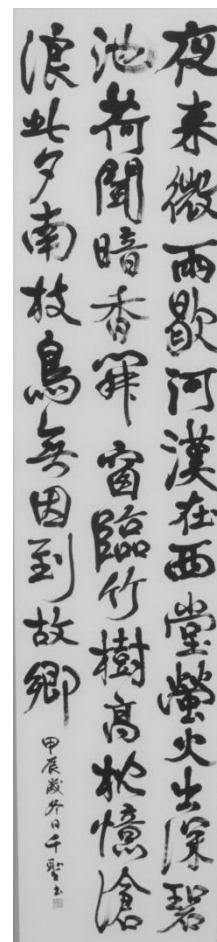 夜来微雨歇河漢在西堂螢火出深碧
池荷聞暗香開窗臨竹樹高枕憶滄
浪此夕南枝鳥無因到故鄉
甲辰歲冬日千聖書